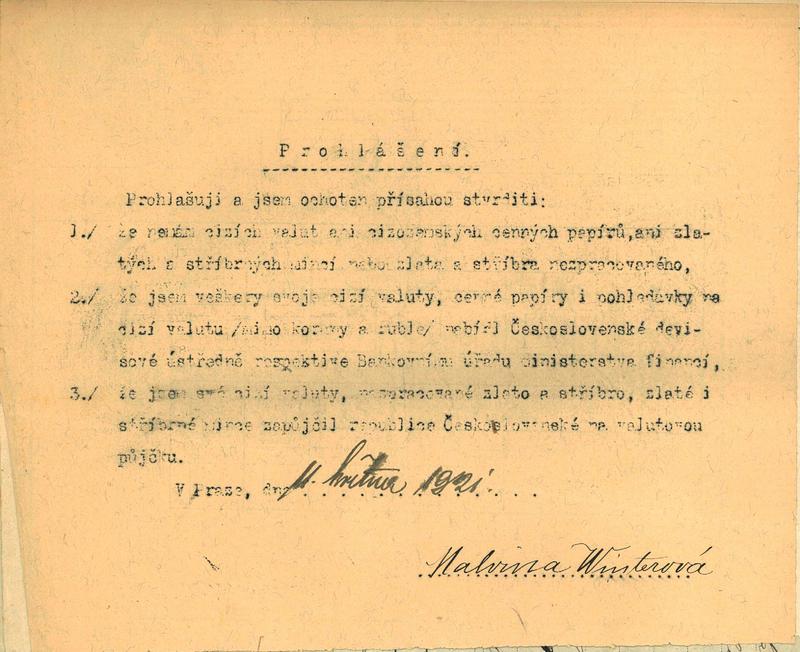 Prohlášení.
Prohlašuji a jsem ochoten přísahou stvrditi:
1./ že nemám cizích valut ani cizozemských cenných papírů, ani zla-
tých a stříbrných mincí nebo zlata a stříbra nezpracovaného,
2./ že jsem veškery svoje cizí valuty, cenné papíry i pohledávky na
cizí valutu /mimo koruny a ruble/ nabídl Československé devi-
sové ústředně respektive Bankovnímu úřadu ministerstva financí,
3./ že jsem své cizí valuty, nezpracované zlato a stříbro, zlaté i
stříbrné mince zapůjčil republice Československé na valutovou
půjčku.
V Praze, dne 11. května 1921.
Malvina Winterová